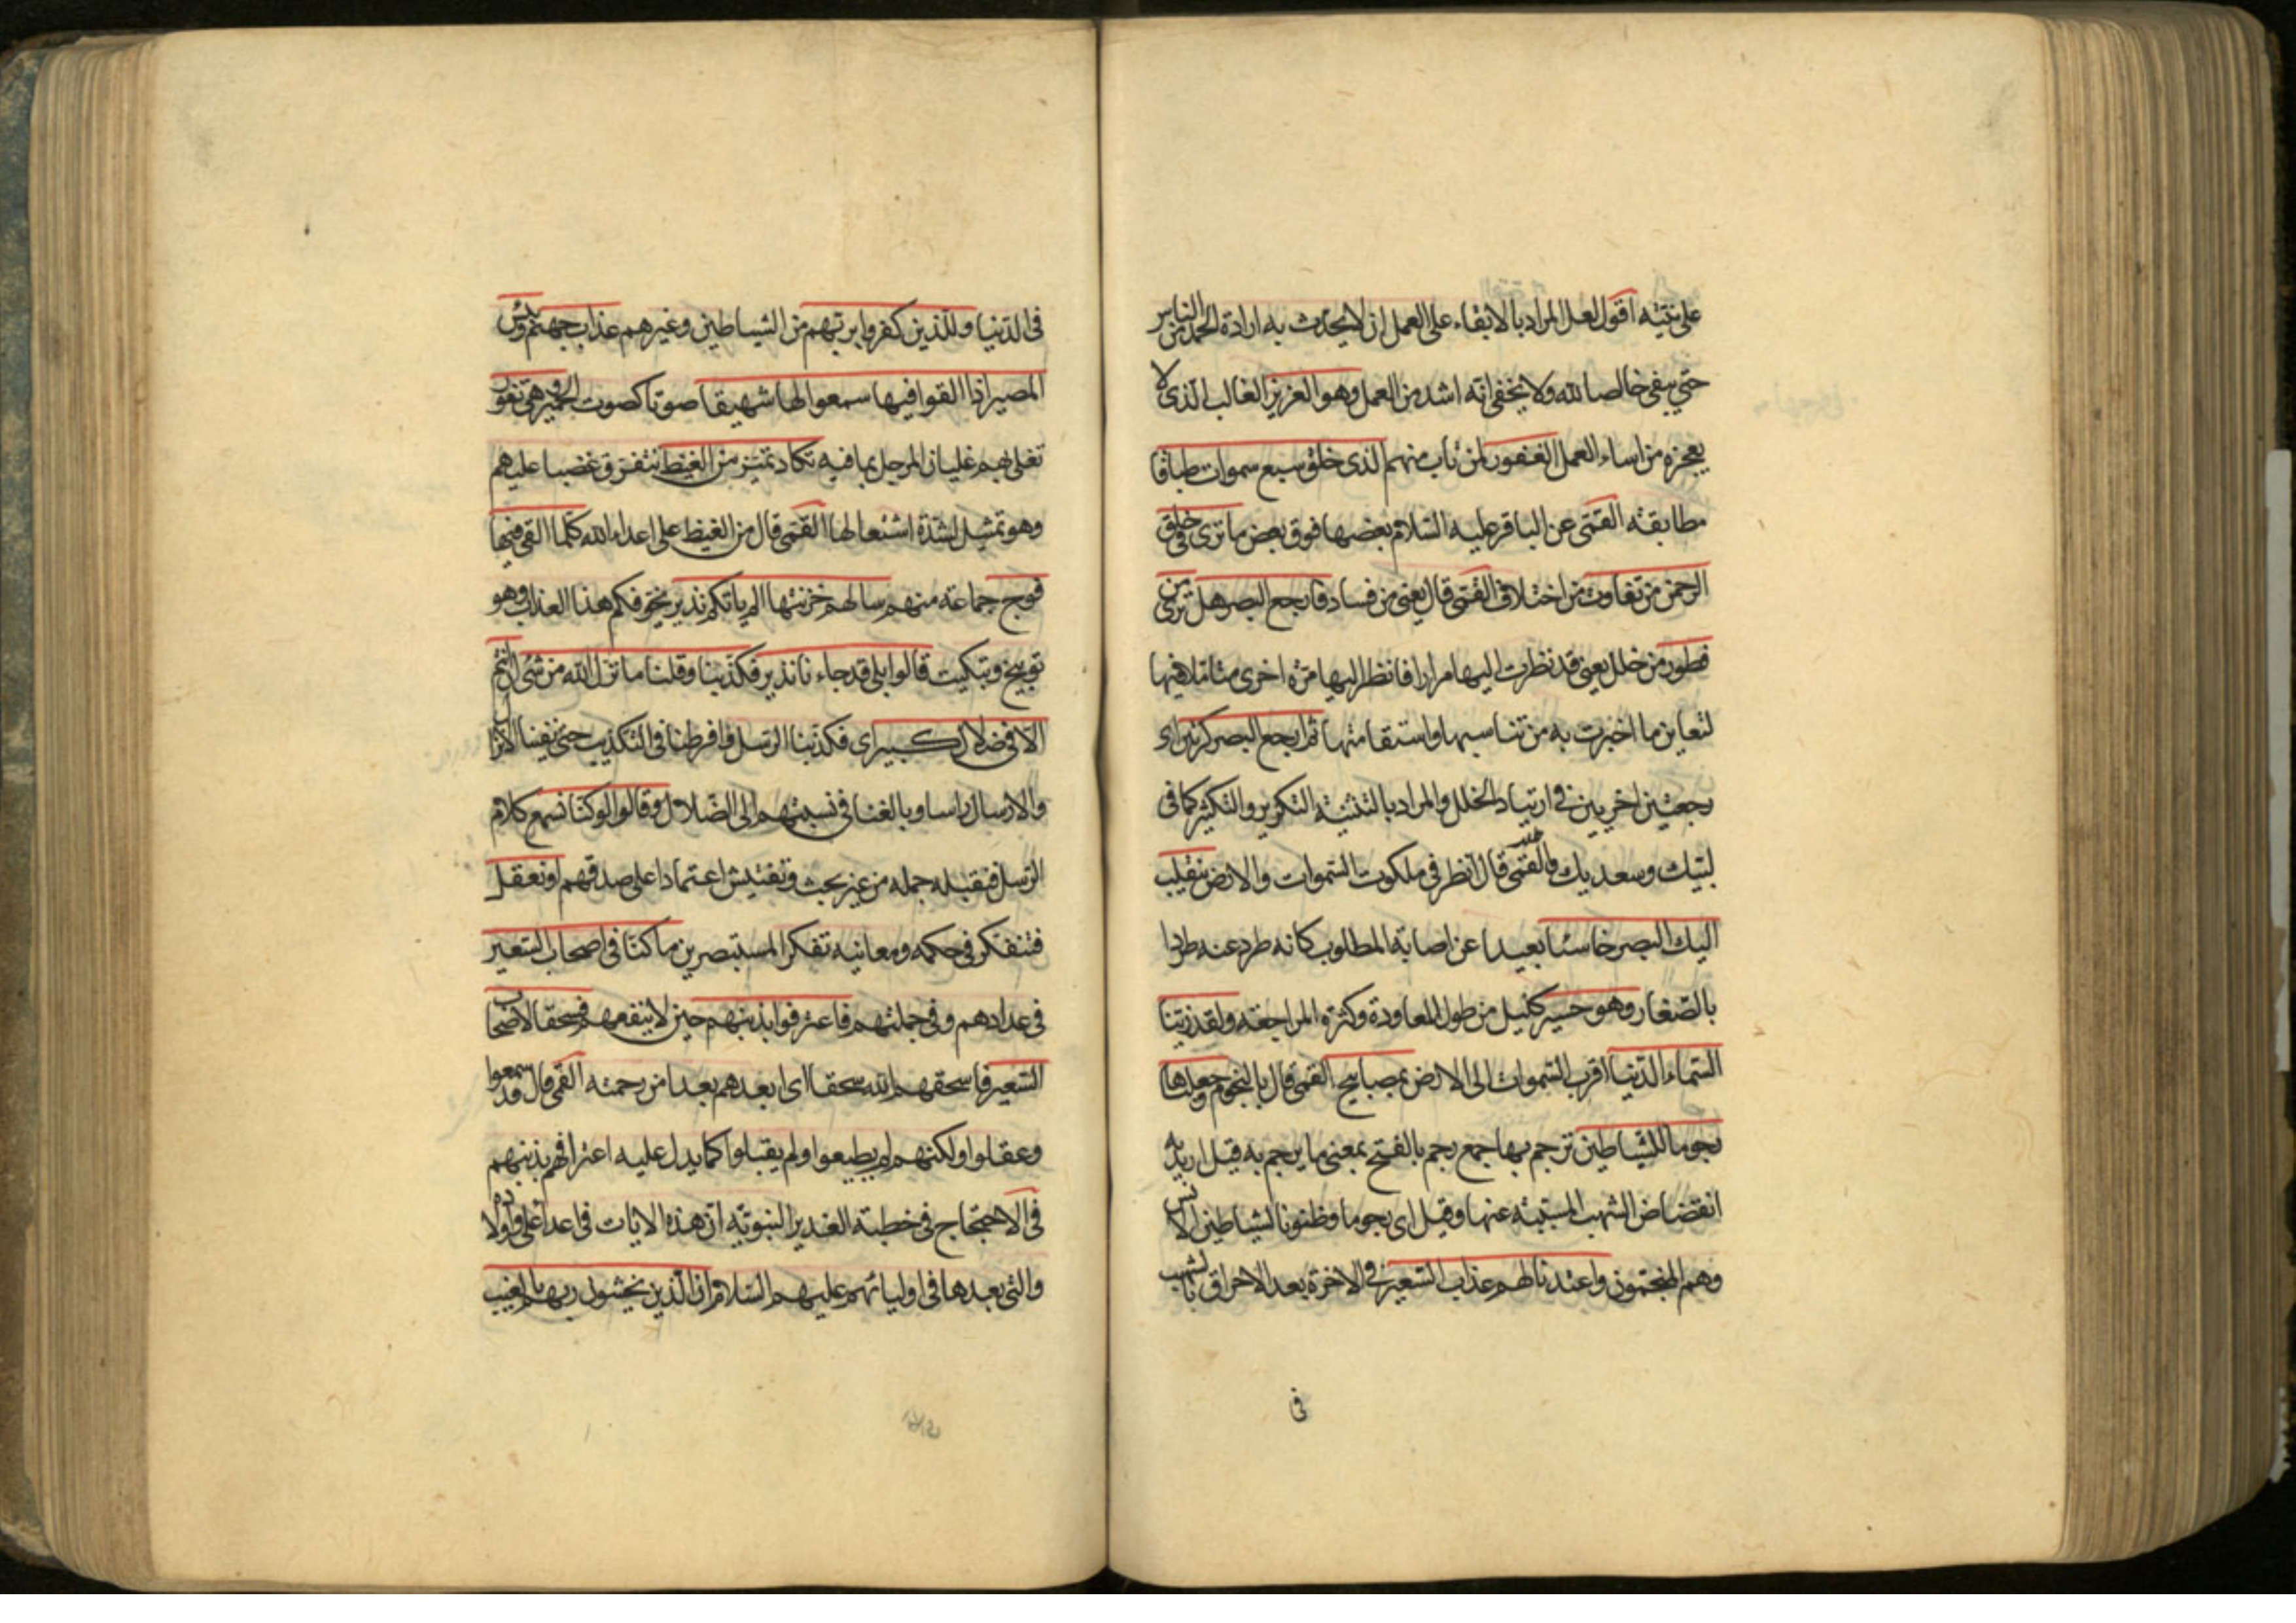 على نيته اقول لعل المراد بالابقاء على العمل ان لا يحدث به ارادة الحمد من الناس
حتى يبقى خالصا لله ولا يخفى انه اشد من العمل وهو العزيز الغالب الذى لا
يعجزه من اساء العمل الغفور لمن تاب منهم الذى خلق سبع سموات طباقا
مطابقة القمّى عن الباقر عليه السّلام بعضها فوق بعض ما ترى فى خلق
الرحمن من تفاوت من اختلاف القمّى قال يعنى من فساد فارجع البصر هل ترى من
فطور من خلل يعنى قد نظرت اليها مرارا فانظر اليها مرّة اخرى متامّلا فيها
لتعاين ما اخبرت به من تناسبها واستقامتها ثم ارجع البصر كرّتين اى
رجعتين اخريين فى ارتياد الخلل والمراد بالتثنية التكرير والتكثير كما فى
لبّيك وسعديك والقمّى قال انظر فى ملكوت السّموات والارض ينقلب
اليك البصر خاسئا بعيدا عن اصابة المطلوب كانه طرد عنه طردا
بالصّغار وهو حسير كليل من طول المعاودة وكثرة المراجعة ولقد زيّنا
السّماء الدّنيا اقرب السّموات الى الارض بمصابيح القمّى قال بالنجوم وجعلناها
رجوما للشّياطين ترجم بها جمع رجم بالفتح بمعنى ما يرجم به قيل اريد به
انقضاض الشهب المسبّبة عنها وقيل اى رجوما وظنونا لشياطين الانس
وهم المنجّمون واعتدنا لهم عذاب السّعير فى الاخرة بعد الاحراق بالشهب
فى
فى الدّنيا وللّذين كفروا بربّهم من الشياطين وغيرهم عذاب جهنّم وبئس
المصير اذا القوا فيها سمعوا لها شهيقا صوتا كصوت الحمير وهى تفور
تغلى بهم غليان المرجل بما فيه تكاد تميّز من الغيظ تتفرق غضبا عليهم
وهو تمثيل لشدّة اشتعالها القمّى قال من الغيظ على اعداء الله كلّما القى فيها
فوج جماعة منهم سالهم خزنتها الم ياتكم نذير يخوّفكم هذا العذاب وهو
توبيخ وتبكيت قالوا بلى قد جاءنا نذير فكذّبنا وقلنا ما نزّل الله من شئ ان انتم
الّا فى ضلال كبير اى فكذّبنا الرّسل وافرطنا فى التكذيب حتى نفينا الانزال
والارسال راسا وبالغنا فى نسبتهم الى الضّلال وقالوا لو كنّا نسمع كلام
الرّسل فنقبله جملة من غير بحث وتفتيش اعتمادا على صدقهم او نعقل
فنتفكر فى حكمه ومعانيه تفكّر المستبصرين ما كنّا فى اصحاب السّعير
فى عدادهم وفى جملتهم فاعترفوا بذنبهم حين لا ينفعهم فسحقا لاصحاب
السّعير فاسحقهم الله سحقا اى ابعدهم بعدا من رحمته القمّى قال قد سمعوا
وعقلوا ولكنهم لم يطيعوا ولم يقبلوا كما يدل عليه اعترافهم بذنبهم
فى الاحتجاج فى خطبة الغدير النبويّة انّ هذه الايات فى اعداء على واولاده
والتى بعدها فى اوليائهم عليهم السّلام ان الّذين يخشون ربهم بالغيب